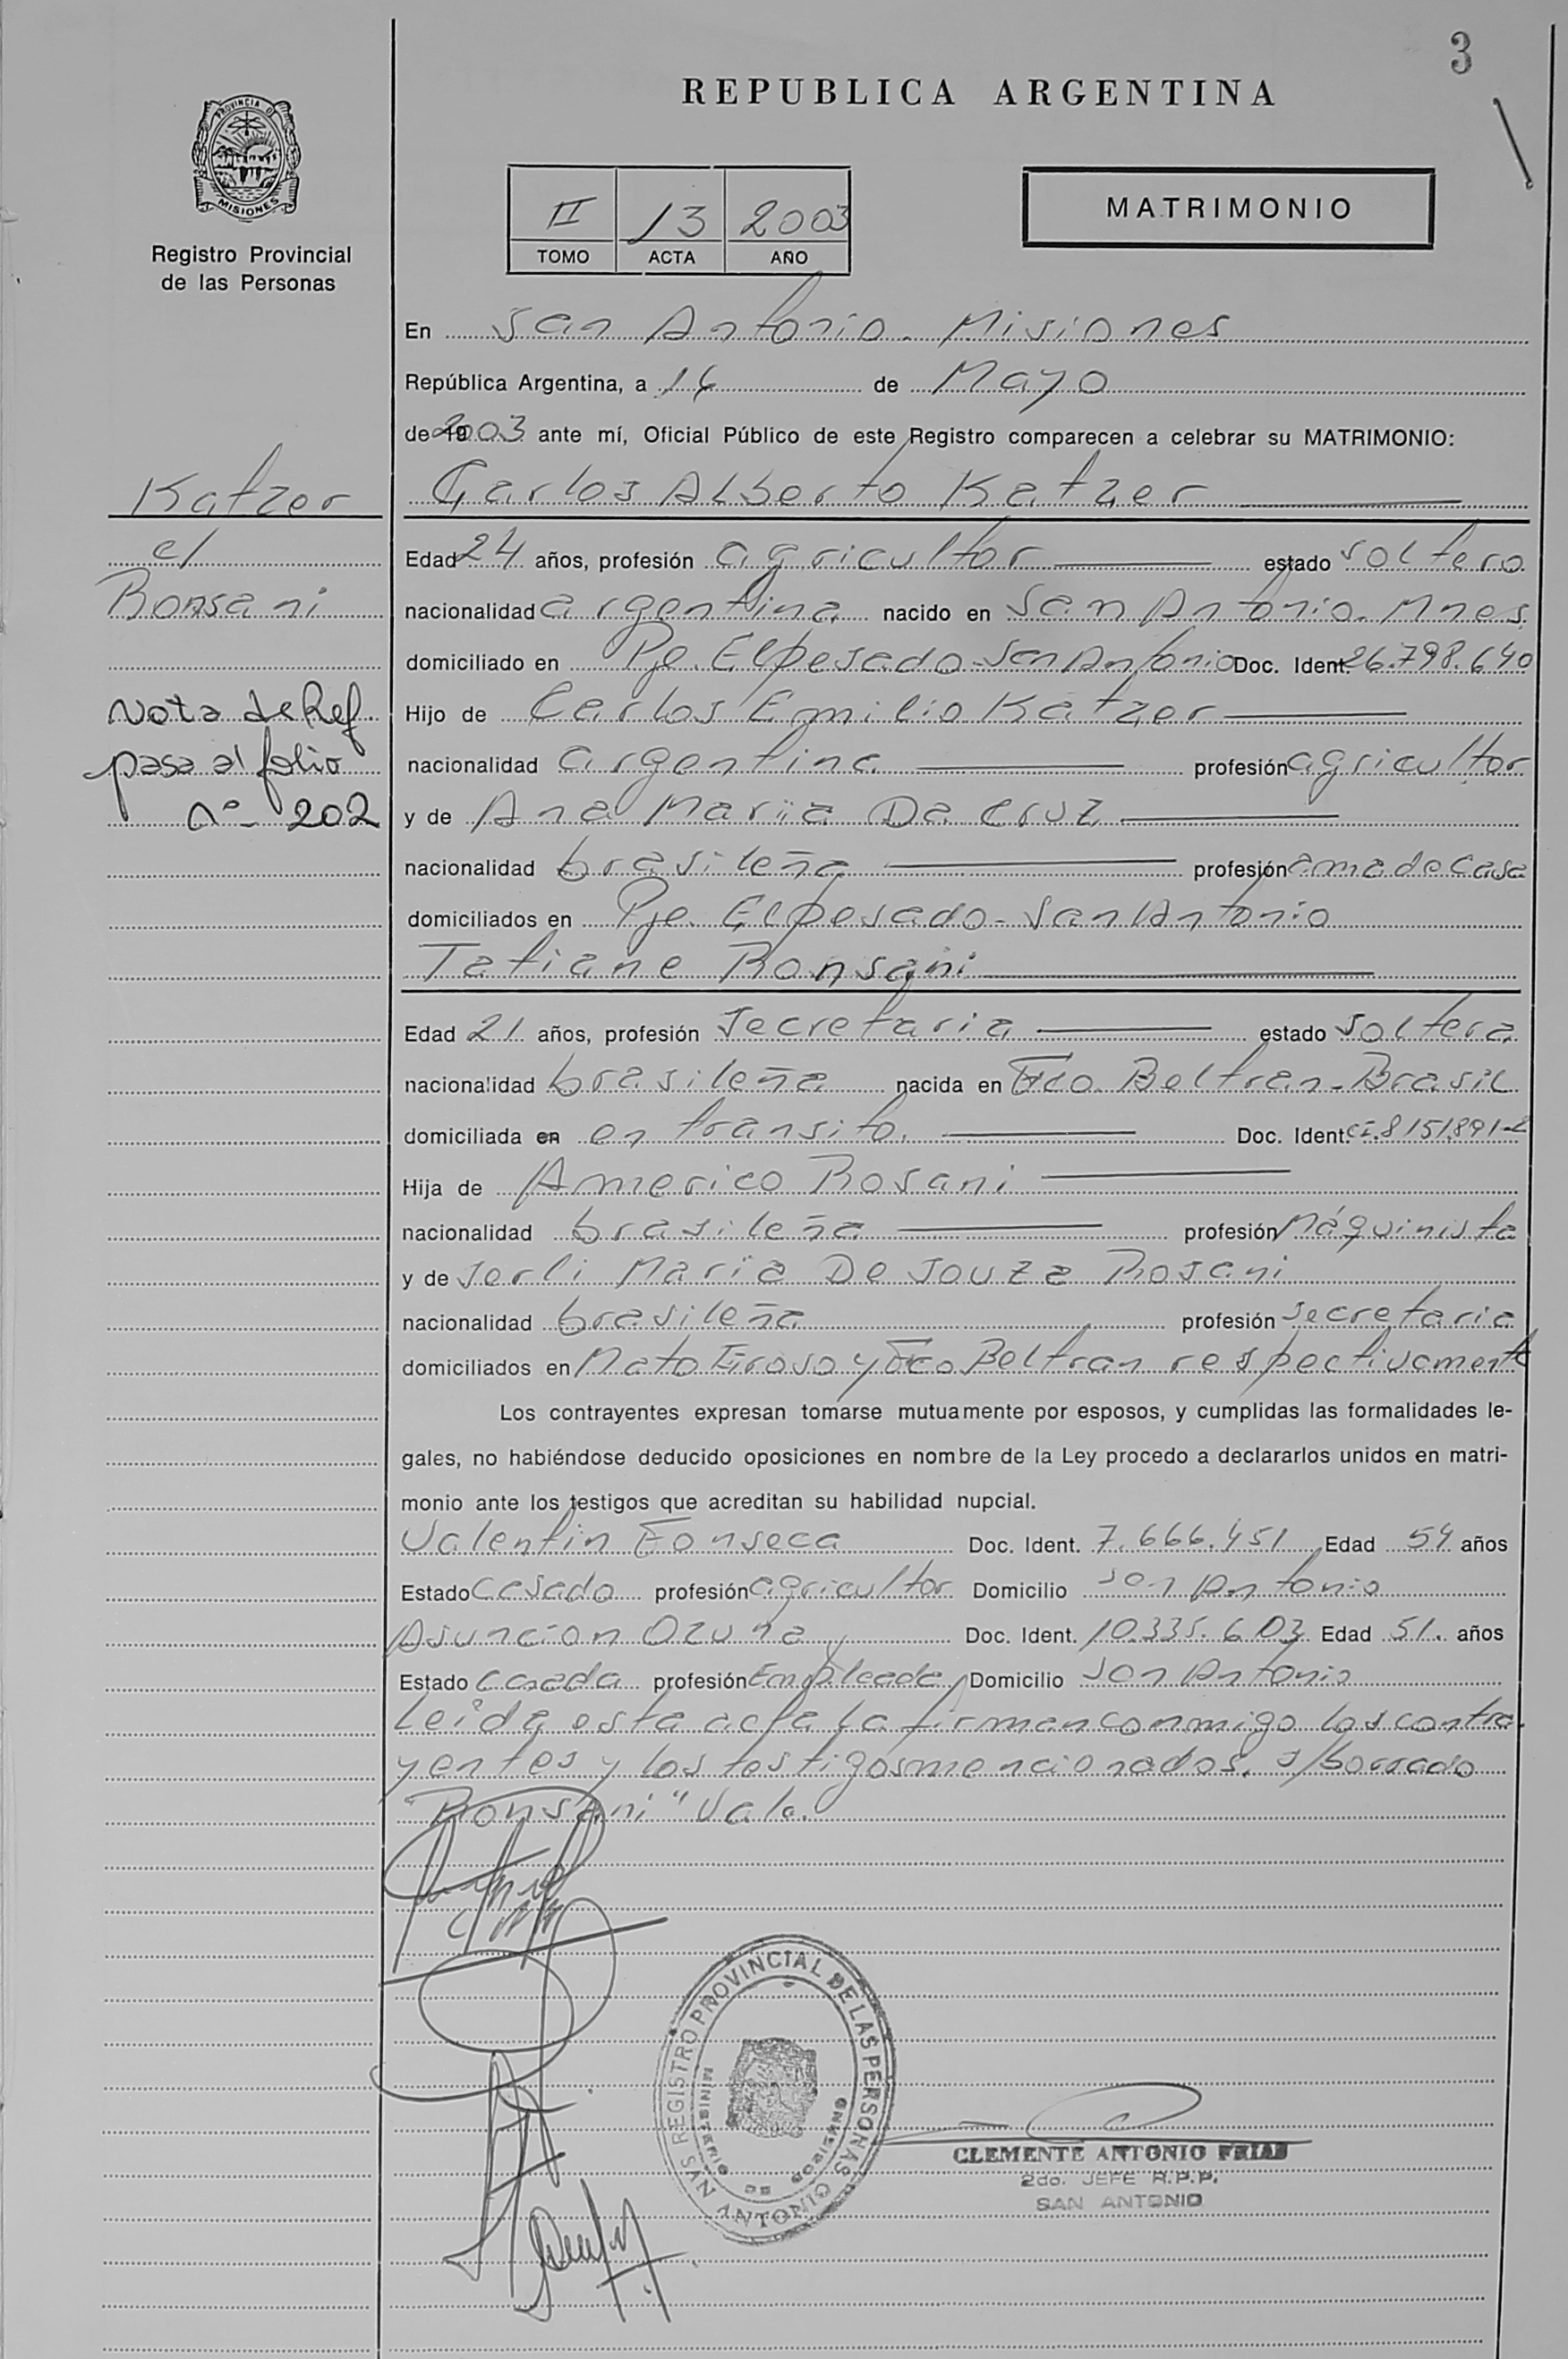 3
REPUBLICA ARGENTINA
PROVINCIA DE
MISIONES
Registro Provincial
de las Personas
II 13 2003
TOMO ACTA AÑO
MATRIMONIO
En San Antonio. Misiones
República Argentina, a 16 de Mayo
de 2003 ante mí, Oficial Público de este Registro comparecen a celebrar su MATRIMONIO:
Katzer
c/
Bonsani
Nota de Ref.
pasa al folio
nº 202
Carlos Alberto Katzer
Edad 24 años, profesión agricultor estado soltero
nacionalidad argentina nacido en San Antonio. Mnes.
domiciliado en Pje. El pesado - San Antonio Doc. Ident. 26.798.640
Hijo de Carlos Emilio Katzer
nacionalidad argentina profesión agricultor
y de Ana Maria Da Cruz
nacionalidad brasileña profesión ama de casa
domiciliados en Pje. El pesado - San Antonio
Tatiane Bonsani
Edad 21 años, profesión Secretaria estado soltera
nacionalidad brasileña nacida en Fco. Beltran - Brasil
domiciliada en en transito. Doc. Ident. CI. 8151891-2
Hija de Americo Rosani
nacionalidad brasileña profesión Máquinista
y de Serli Maria De Souza Rosani
nacionalidad brasileña profesión secretaria
domiciliados en Mato Groso y Fco Beltran respectivamente
Los contrayentes expresan tomarse mutuamente por esposos, y cumplidas las formalidades le-
gales, no habiéndose deducido oposiciones en nombre de la Ley procedo a declararlos unidos en matri-
monio ante los testigos que acreditan su habilidad nupcial.
Valentin Fonseca Doc. Ident. 7.666.451 Edad 54 años
Estado Casado profesión agricultor Domicilio San Antonio
Asuncion Ozuna Doc. Ident. 10.335.603 Edad 51. años
Estado Casada profesión Empleada Domicilio San Antonio
Leida esta acta la firman conmigo los contra-
yentes y los testigos mencionados. s/borrado
"Bonsani" Vale.
REGISTRO PROVINCIAL DE LAS PERSONAS
MINISTERIO DE GOBIERNO
SAN ANTONIO
CLEMENTE ANTONIO FRIAS
2do. JEFE R.P.P.
SAN ANTONIO